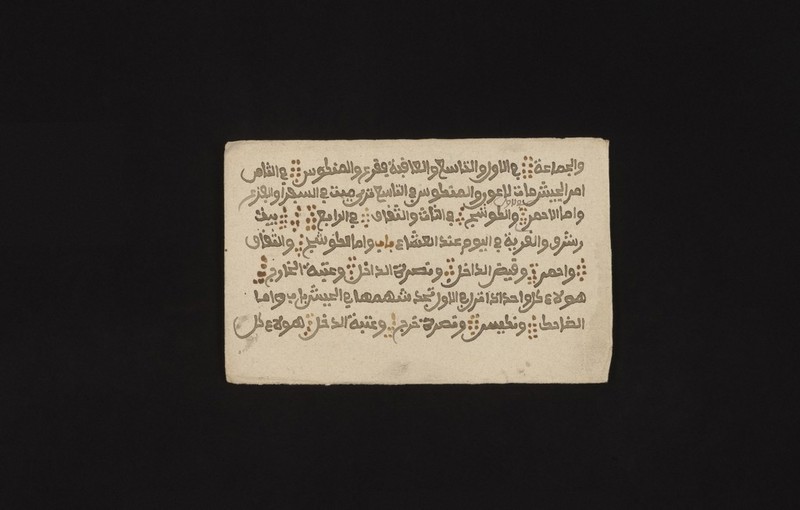 والجماعة في الاول والتاسع والعاقبة يفرع والمنكوس في الثامن
امر الجيش مات لاعور والمنكوس في التاسع ترى ميت في السفر او الفزع
واما الاحمر والكوشيج في الثالث والثقاف في الرابع بيت
رشرق والغربة في اليوم عند العشاء باب واما الكوشيج والثقاف
واحمر وقبض الداخل ونصرة الداخل وعتبة الخارج
هولاء كل واحد اذا نزل في الاول تجد شهمها في الجيش باب واما
الضاحك ونكيس ونصرة خرج وعتبة الدخل هولاء كل